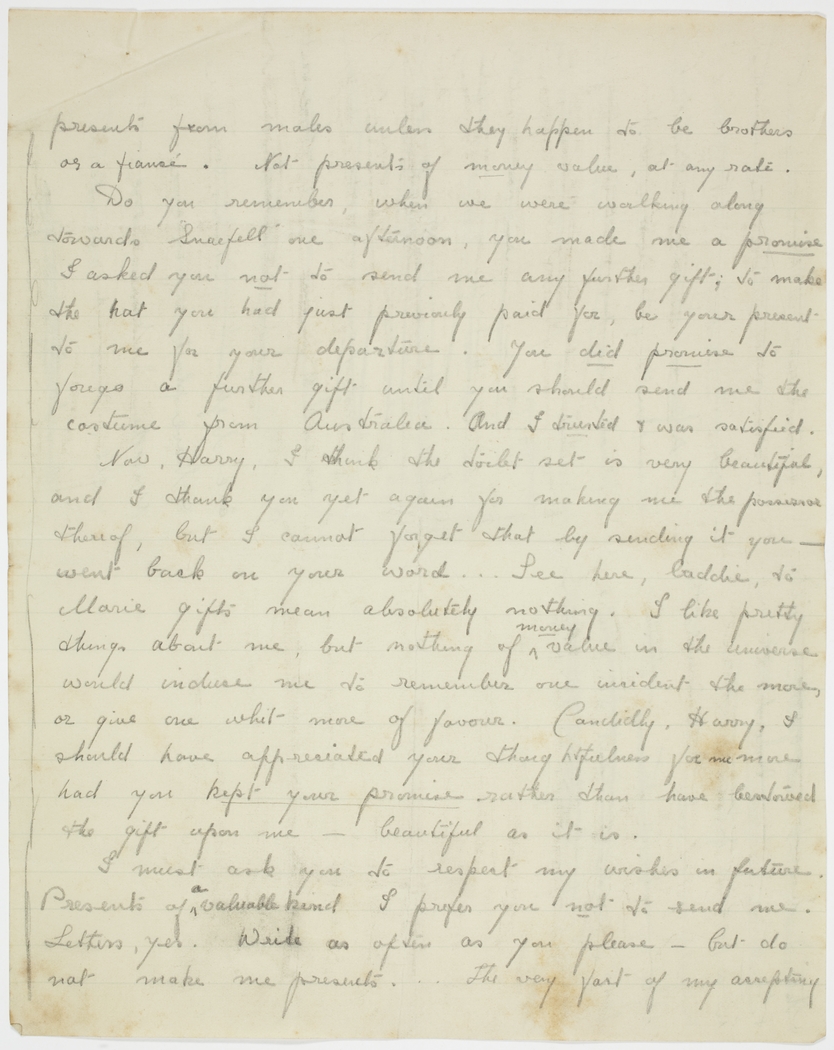 presents from males unless they happen to be brothers
or a fiancé. Not presents of money value, at any rate.
Do you remember, when we were walking along
towards "Snaefell" one afternoon, you made me a promise
I asked you not to send me any further gift; to make
the hat you had just previously paid for, be your present
to me for your departure. You did promise to
forego a further gift until you should send me the
costume from Australia. And I trusted & was satisfied.
Now, Harry, I think the toilet set is very beautiful,
and I thank you yet again for making me the possessor
thereof, but I cannot forget that by sending it you —
went back on your word... See here, laddie, to
Marie gifts mean absolutely nothing. I like pretty
things about me, but nothing of money value in the universe
would induce me to remember one incident the more,
or give one whit more of favour. Candidly, Harry, I
should have appreciated your thoughtfulness for me more
had you kept your promise rather than have bestowed
the gift upon me — beautiful as it is.
I must ask you to respect my wishes in future.
Presents of a valuable kind I prefer you not to send me.
Letters, yes. Write as often as you please — but do
not make me presents. .. The very fact of my accepting